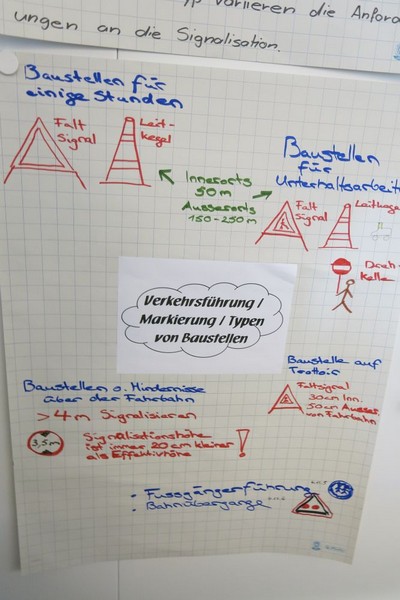 variieren die
ungen an die Signalisation.
Baustellen für
einige Stunden
Falt
Signal
Leit-
kegel
Innerorts
50m
Ausserorts
150-250m
Baustellen
für
Unterhaltsarbeite
Falt
Signal
Leitkege
Dreh-
kelle
Verkehrsführung /
Markierung / Typen
von Baustellen
Baustelle auf
Trottoir
Faltsignal
30cm Inn.
50cm Ausser.
von Fahrbahn
Baustellen o. Hindernisse
über der Fahrbahn
>4m Signalisieren
3,5m
Signalisationshöhe
ist immer 20cm kleiner
als Effektivhöhe
!
- Fussgängerführung
- Bahnübergänge